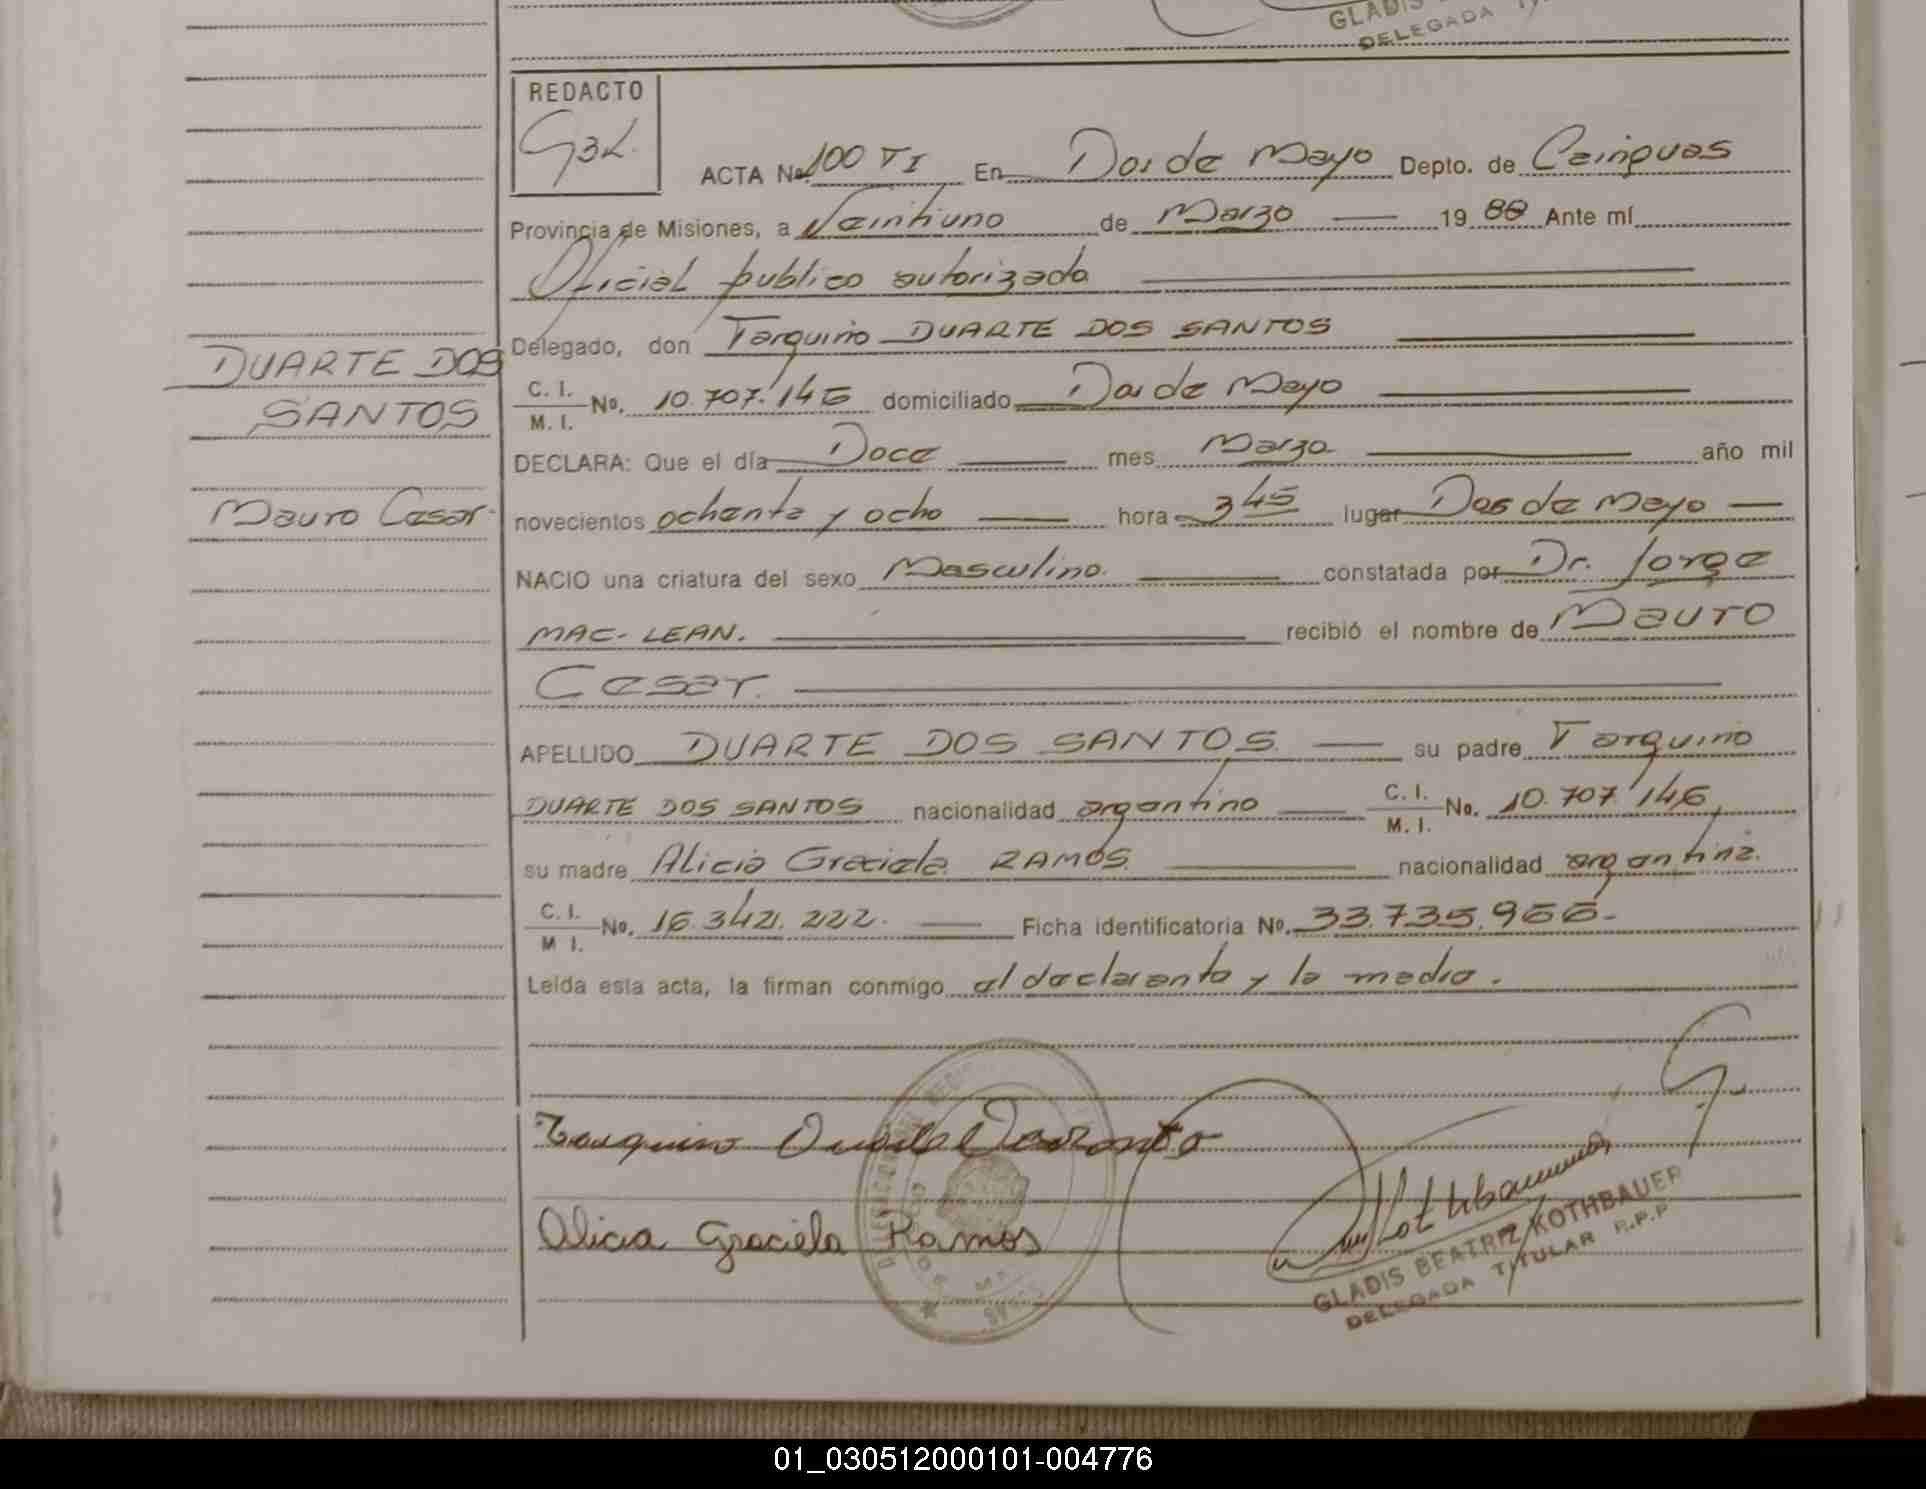 GLADIS
DELEGADA
REDACTO
ACTA No. 100 TI En Dos de Mayo Depto. de Cainguas
Provincia de Misiones, a Veintiuno de Marzo 19 88 Ante mí
Oficial publico autorizado
Delegado, don Tarquino DUARTE DOS SANTOS
DUARTE DOS
SANTOS
C. I.
M. I. No. 10.707.146 domiciliado Dos de Mayo
DECLARA: Que el día Doce mes Marzo año mil
Mauro Cesar
novecientos ochenta y ocho hora 3 45 lugar Dos de Mayo
NACIO una criatura del sexo Masculino. constatada por Dr. Jorge
MAC-LEAN. recibió el nombre de Mauro
Cesar.
APELLIDO DUARTE DOS SANTOS su padre Tarquino
DUARTE DOS SANTOS nacionalidad argentino C. I.
M. I. No. 10.707.146
su madre Alicia Graciela RAMOS nacionalidad argentina.
C. I.
M I. No. 16.342.222. Ficha identificatoria No. 33.735.966-
Leída esta acta, la firman conmigo el declarante y la madre.
Tarquino Duarte Dos Santos
Alicia Graciela Ramos
GLADIS BEATRIZ KOTHBAUER
DELEGADA TITULAR R.P.P
01_030512000101-004776